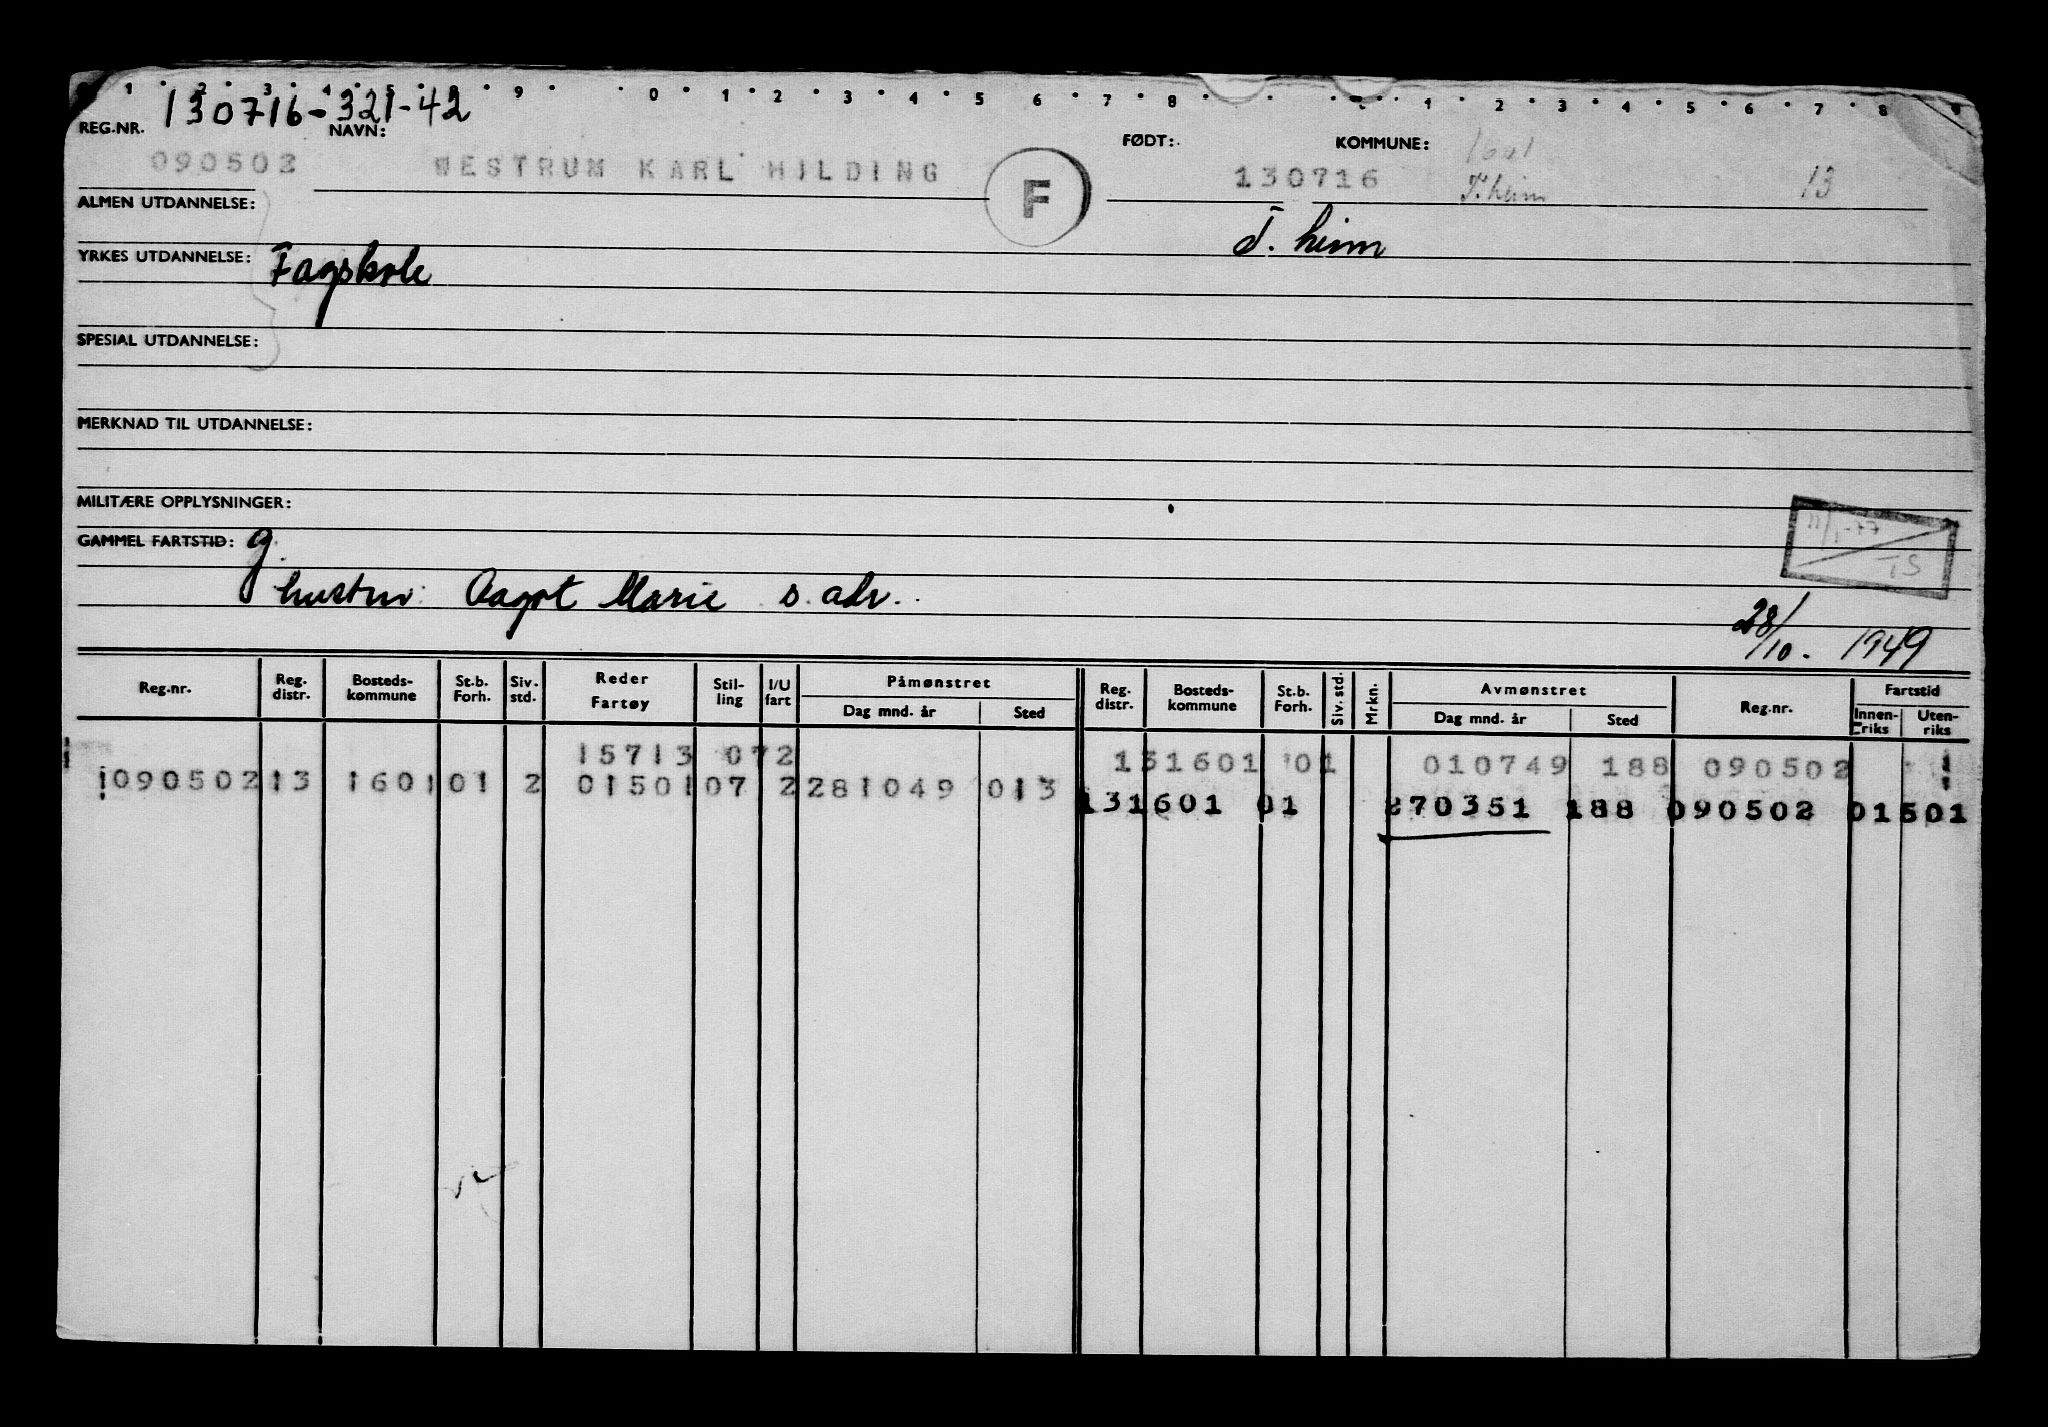 1 2 3 4 5 9 0 1 2 3 4 5 6 7 8 1 2 3 4 5 6 7 8 9
130716-321-42
REG.NR. NAVN: FØDT: KOMMUNE: 1601
090502 WESTRUM KARL HILDING F 130716 T.heim 13
ALMEN UTDANNELSE: T. heim
YRKES UTDANNELSE: Fagskole
SPESIAL UTDANNELSE:
MERKNAD TIL UTDANNELSE:
MILITÆRE OPPLYSNINGER:
GAMMEL FARTSTID: g. 11/1-77
TS
hustru: Aagot Marie s. adr.
28/10. 1949
Reg.nr. Reg. distr. Bosteds-kommune St.b. Forh. Siv. std. Reder Fartøy Stil-ling I/U fart Påmønstret Dag mnd. år Sted Reg. distr. Bosteds-kommune St.b. Forh. Siv. std. Mrkn. Avmønstret Dag mnd. år Sted Reg.nr. Fartstid Innen-riks Uten-riks
15713 072 131601 01 010749 188 090502
090502 13 1601 01 2 01501 07 2 281049 013
131601 01 270351 188 090502 01501